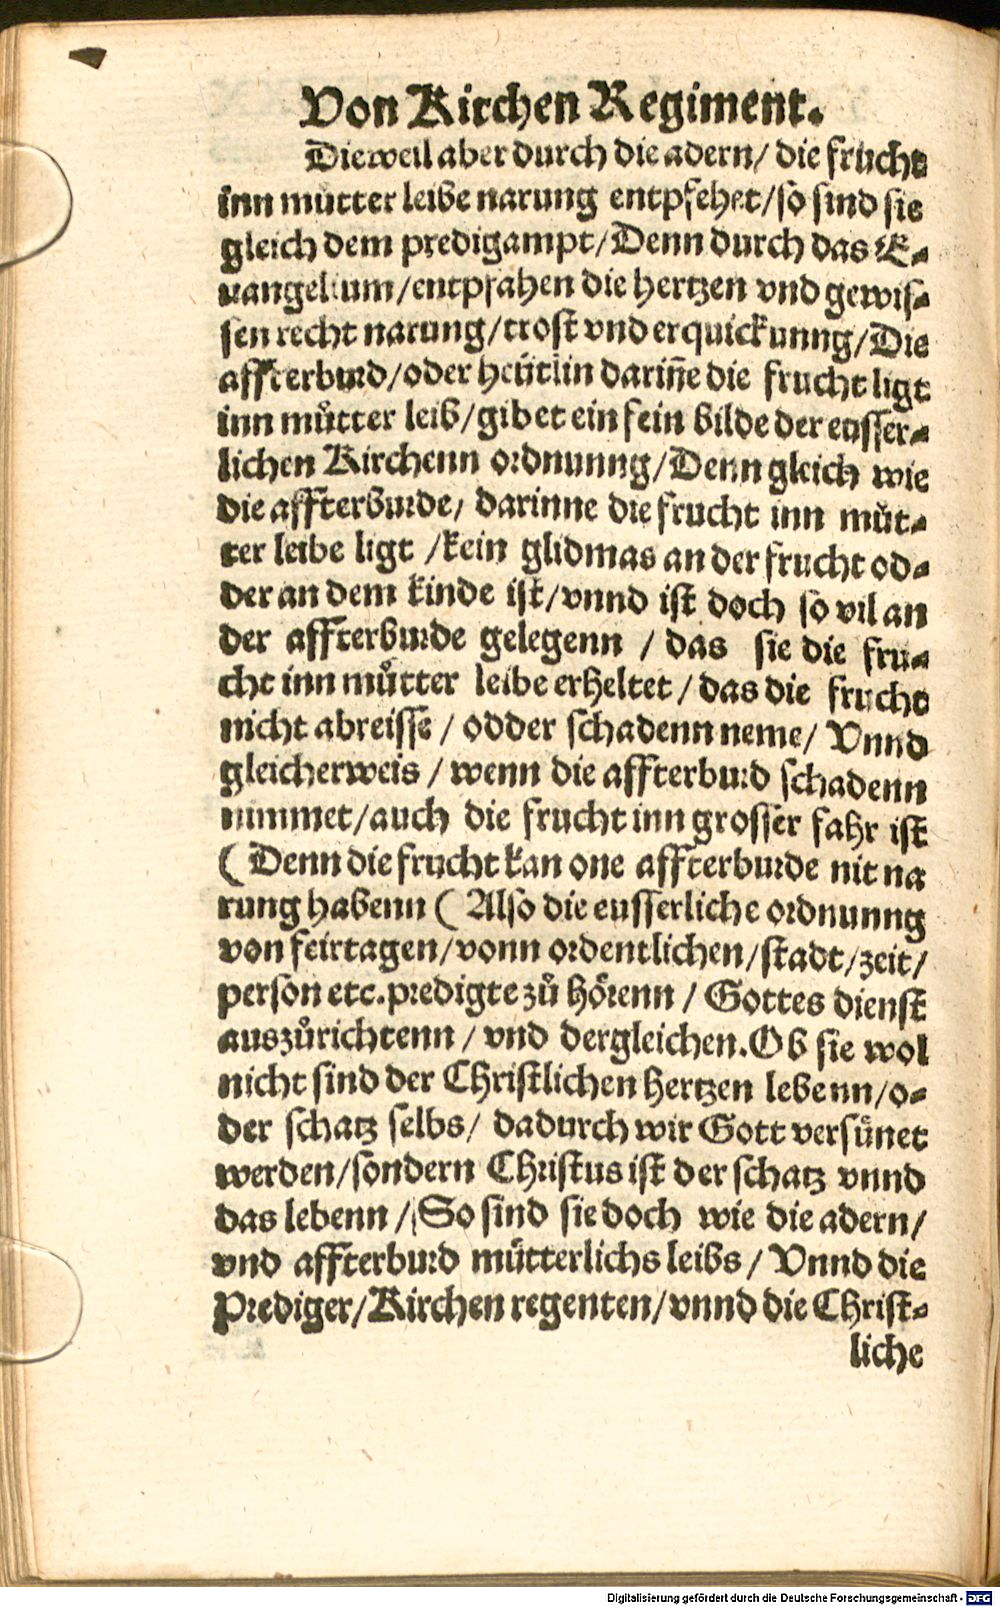 Von Kirchen Regiment.
Dieweil aber durch die adern/ die frucht
inn mütter leibe narung entpfehet/so sind sie
gleich dem predigampt/Denn durch das E-
uangelium/entpfahen die hertzen vnd gewis-
sen recht narung/trost vnd erquickunng/Die
affterburd/oder heütlin dariñe die frucht ligt
inn muͤtter leib/gibet ein fein bilde der eusser-
lichen Kirchenn ordnunng/Denn gleich wie
die affterburde/ darinne die frucht inn muͤt-
ter leibe ligt /kein glidmas an der frucht od-
der an dem kinde ist/vnnd ist doch so vil an
der affterburde gelegenn / das sie die fru-
cht inn muͤtter leibe erheltet / das die frucht
nicht abreisse / odder schadenn neme/ Vnnd
gleicherweis / wenn die affterburd schadenn
nimmet/auch die frucht inn grosser fahr ist
( Denn die frucht kan one affterburde nit na
rung habenn ( Also die eusserliche ordnunng
von feirtagen/vonn ordentlichen/stadt/zeit/
person etc.predigte zuͦ hörenn / Gottes dienst
auszuͦrichtenn / vnd dergleichen.Ob sie wol
nicht sind der Christlichen hertzen lebenn/o-
der schatz selbs/ dadurch wir Gott versünet
werden/sondern Christus ist der schatz vnnd
das lebenn /So sind sie doch wie die adern/
vnd affterburd mütterlichs leibs / Vnnd die
Prediger/Kirchen regenten/vnnd die Christ-
liche
Digitalisierung gefördert durch die Deutsche Forschungsgemeinschaft - DFG